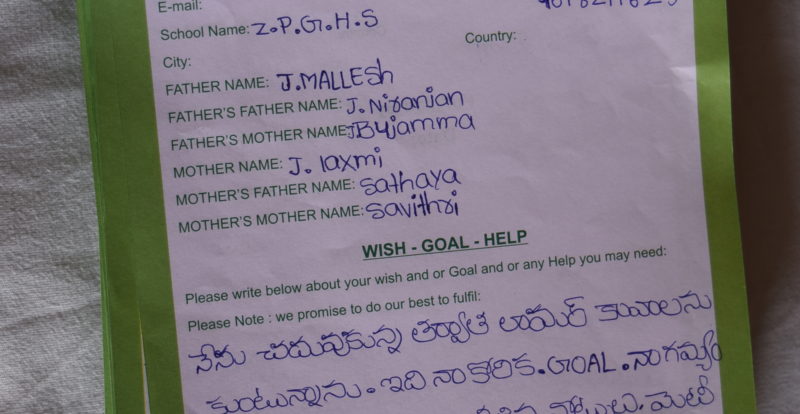 E-mail:
School Name: Z.P.G.H.S
Country:
City:
FATHER NAME: J.MALLESh
FATHER'S FATHER NAME: J. Niranjan
FATHER'S MOTHER NAME: J Bujamma
MOTHER NAME: J. laxmi
MOTHER'S FATHER NAME: Sathaya
MOTHER'S MOTHER NAME: Savithri
WISH - GOAL - HELP
Please write below about your wish and or Goal and or any Help you may need:
Please Note : we promise to do our best to fulfil:
నేను చదువుకున్న తర్వాత లాయర్ కావాలను
కుంటున్నాను. ఇది నా కోరిక. GOAL. నా గమ్యం